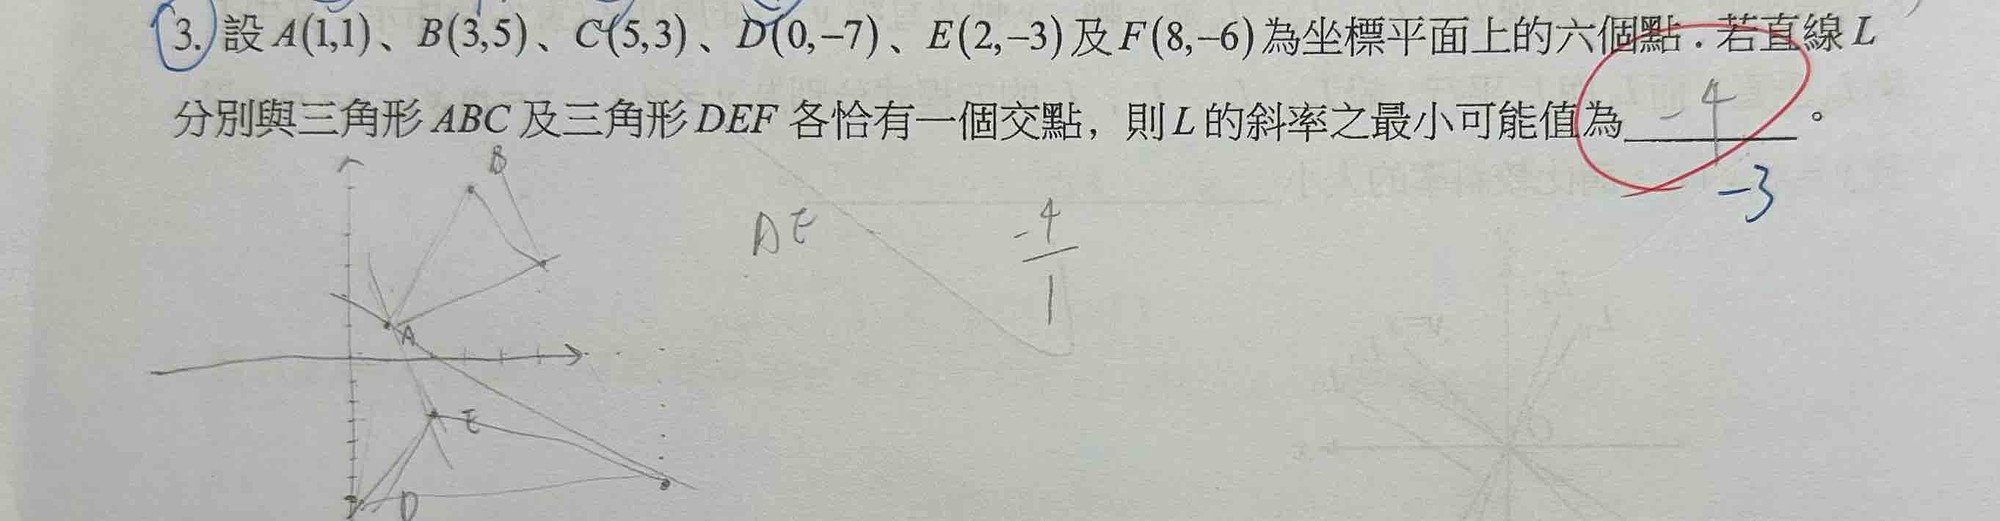 3. 設A(1,1)、B(3,5)、C(5,3)、D(0,−7)、E(2,−3)及F(8,−6)為坐標平面上的六個點．若直線L
分別與三角形ABC及三角形DEF各恰有一個交點，則L的斜率之最小可能值為 -4 。
-3
B
DE
-4
1
A
E
D